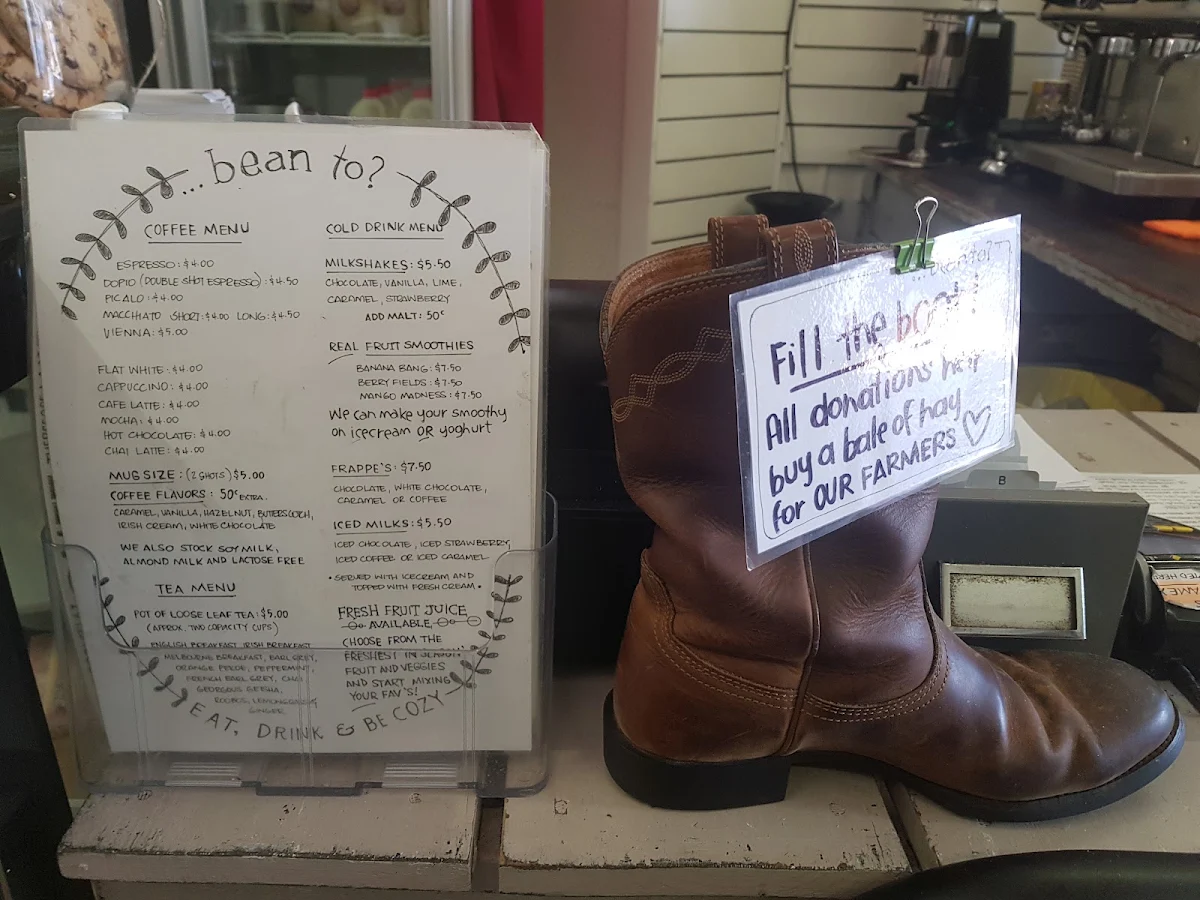 ...bean to?
COFFEE MENU
ESPRESSO: $4.00
DOPIO (DOUBLE SHOT ESPRESSO): $4.50
PICALO: $4.00
MACCHIATO SHORT: $4.00 LONG: $4.50
VIENNA: $5.00
FLAT WHITE: $4.00
CAPPUCCINO: $4.00
CAFE LATTE: $4.00
MOCHA: $4.00
HOT CHOCOLATE: $4.00
CHAI LATTE: $4.00
MUG SIZE: (2 SHOTS) $5.00
COFFEE FLAVORS: 50c EXTRA.
CARAMEL, VANILLA, HAZELNUT, BUTTERSCOTCH,
IRISH CREAM, WHITE CHOCOLATE
WE ALSO STOCK SOY MILK,
ALMOND MILK AND LACTOSE FREE
TEA MENU
POT OF LOOSE LEAF TEA: $5.00
(APPROX. TWO CAPACITY CUPS)
ENGLISH BREAKFAST, IRISH BREAKFAST
MELBOURNE BREAKFAST, EARL GREY,
ORANGE PEKOE, PEPPERMINT,
FRENCH EARL GREY, CHAI
GEORGOUS GEISHA,
ROOBOS, LEMONGRASS
GINGER
COLD DRINK MENU
MILKSHAKES: $5.50
CHOCOLATE, VANILLA, LIME,
CARAMEL, STRAWBERRY
ADD MALT: 50c
REAL FRUIT SMOOTHIES
BANANA BANG: $7.50
BERRY FIELDS: $7.50
MANGO MADNESS: $7.50
We can make your smoothy
on icecream OR yoghurt
FRAPPE'S: $7.50
CHOCOLATE, WHITE CHOCOLATE,
CARAMEL OR COFFEE
ICED MILKS: $5.50
ICED CHOCOLATE, ICED STRAWBERRY,
ICED COFFEE OR ICED CARAMEL
• SERVED WITH ICECREAM AND
TOPPED WITH FRESH CREAM •
FRESH FRUIT JUICE
AVAILABLE
CHOOSE FROM THE
FRESHEST IN SEASON
FRUIT AND VEGGIES
AND START MIXING
YOUR FAV'S!
EAT, DRINK & BE COZY
Fill the boot!
All donations help
buy a bale of hay
for OUR FARMERS ♡
B